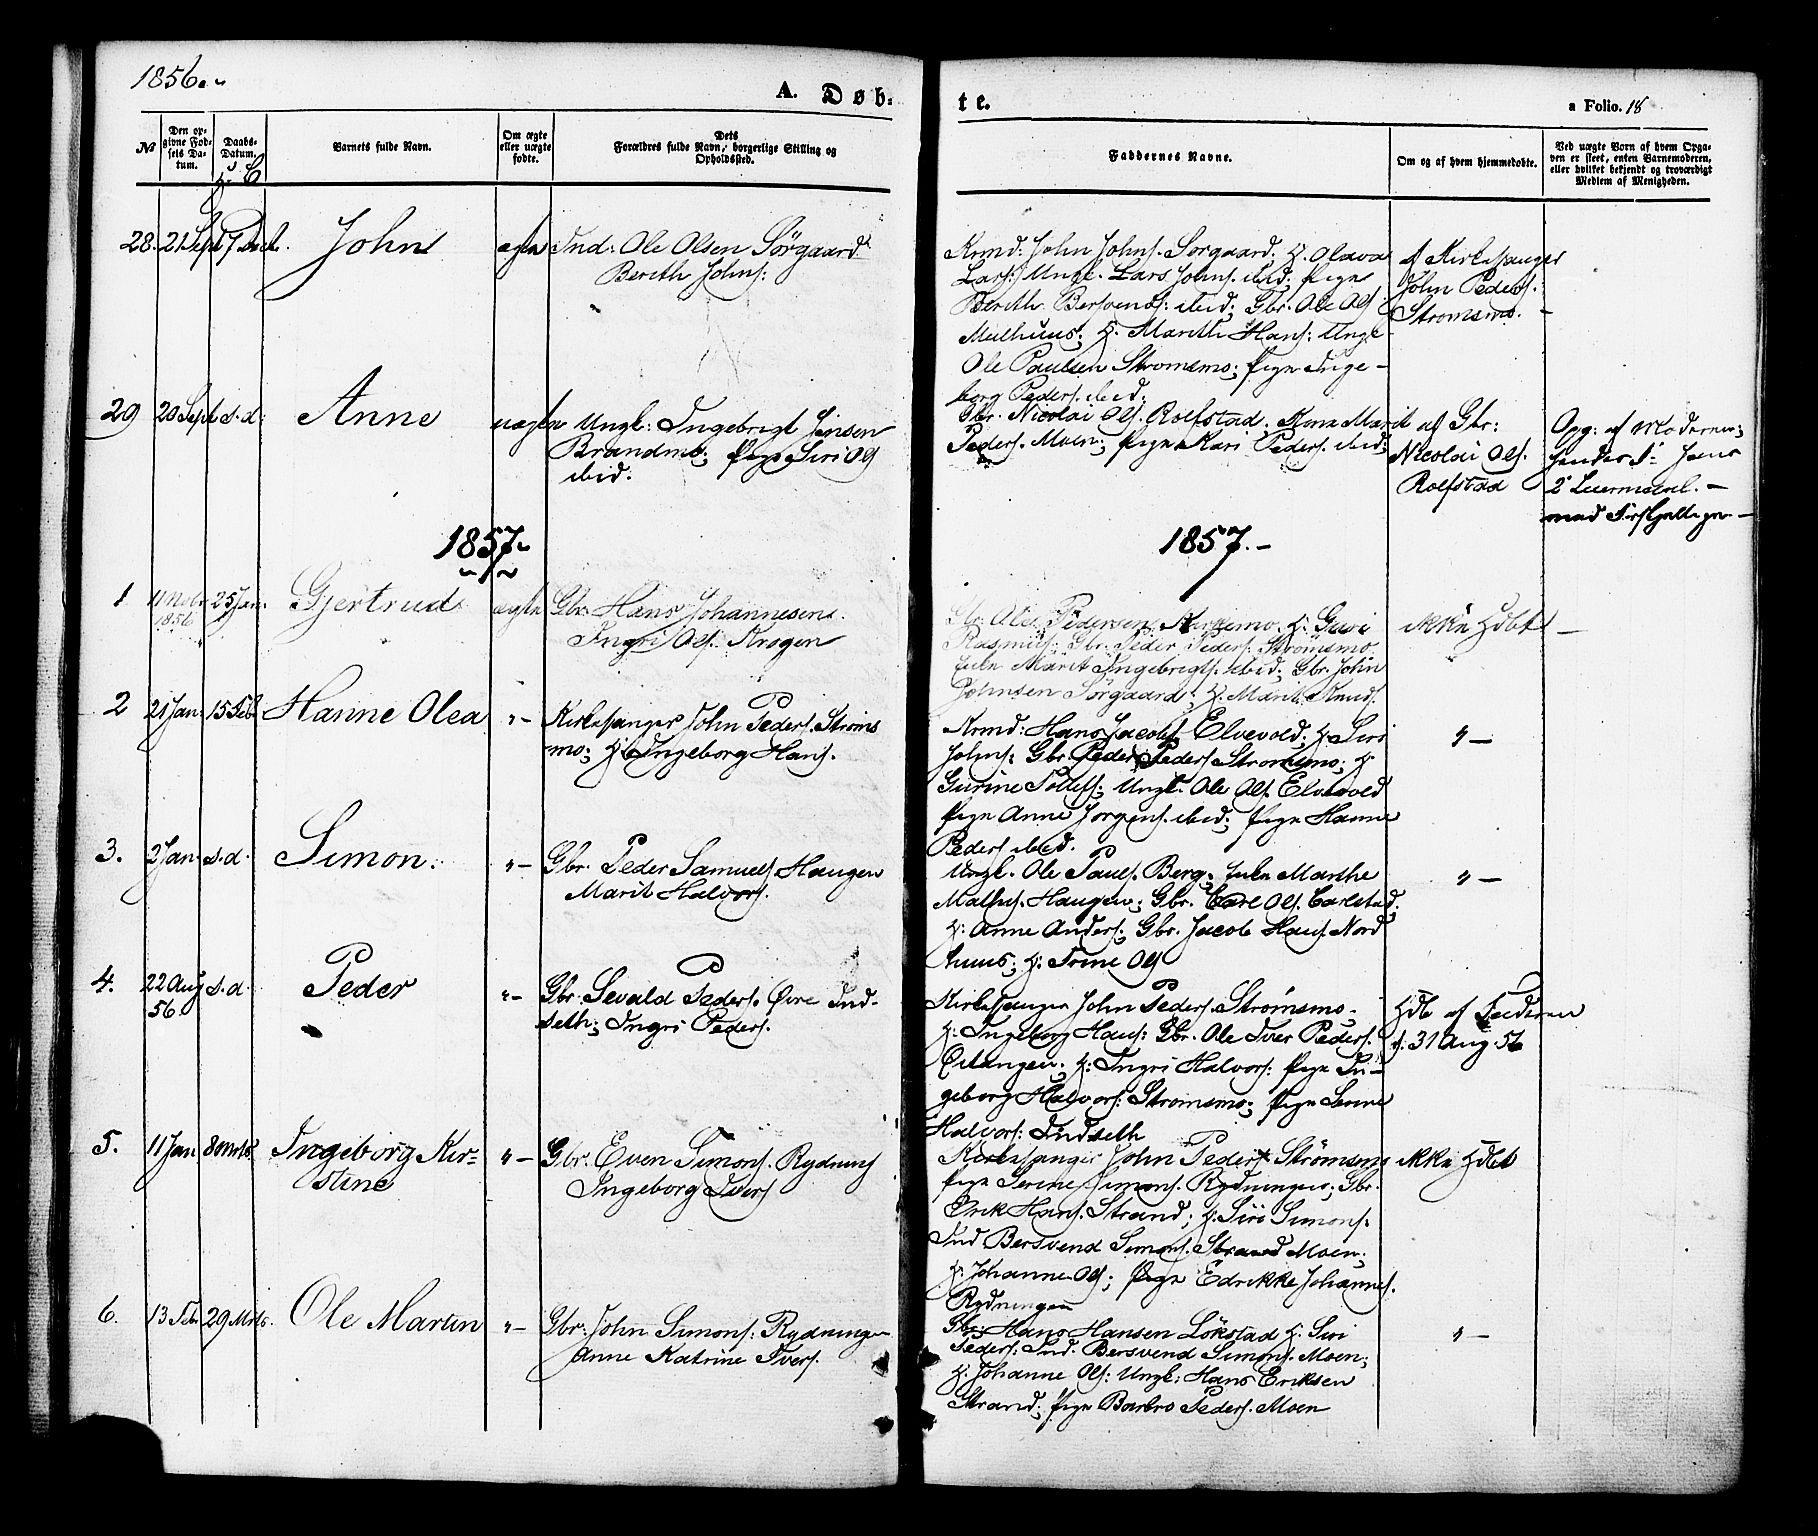 1856.
A. Døb-
te.
a Folio. 18
№
Den op-
givne Fød-
sels Da-
tum.
Daabs-
Datum.
Barnets fulde Navn.
Om ægte
eller uægte
fødte.
Dets
Forældres fulde Navn, borgerlige Stilling og
Opholdssted.
Faddernes Navne.
Om og af hvem hjemmedøbte.
Ved uægte Børn af hvem Opga-
ven er skeet, enten Barnemoderen,
eller hvilket bekjendt og troværdigt
Medlem af Menigheden.
28. 21 Sept 7 Dec. John ægte Ind: Ole Olsen Sørgaard
Bereth Johns:
Krmd: John Johns. Sørgaard. H. Olava
Lars: Ungk. Lars Johns. ibid; Pige
Berith Bersvends: ibid; Gbr. Ole Ols
Melhuus; H. Marith Hans: Ungk
Ole Paulsen Strømsmo; Pige Inge-
borg Peders. ibid;
af Kirkesanger
John Peders.
Strømsmo. -
29 20 Sept s. d: Anne uægte Ungk: Ingebrigt Jensen
Brandmo; Pige Siri Ols
ibid.
Gbr. Nicolai Ols. Rolfstad. Kone Marit
Peders. Moen; Pige Kari Peders. ibid;
af Gbr:
Nicolai Ols.
Rolfstad
Opg: af Moderen;
hendes 1ste hans
2det Leiermaal. -
1857
1857. -
1 11 Nobr 25 Jan. Gjertrud ægte Gbr: Hans Johannesen
1856
Ingri Ols. Krogen
Gbr. Ole Pedersen H. Guri
Rasmus: Gbr. Peder Peders. Strømsmo
Enke Marit Ingebrigts. ibid; Gbr. John
Johnsen Sørgaard; H. Marit Knuds.
ikke Hdbt -
2 21 Jan. 15 Feb Hanne Olea " - Kirkesanger John Peders. Strøms
mo; H. Ingeborg Hans.
Krmd: Hans Jacobs. Elvevold; H. Siri
Johns: Gbr. Peder Peders. Strømsmo; H.
Gurine Tollefs; Ungk. Ole Ols. Elvevold
Pige Anne Jørgens. ibid; Pige Hanne
Peders ibid.
" -
3. 2 Jan. s. d. Simon. " - Gbr. Peder Samuels. Haugen
Marit Halvors.
Ungk. Ole Pauls. Berg; Enke Marthe
Mathis. Haugen; Gbr. Carl Ols. Carlstad;
H: Anne Anders; Gbr. Jacob Hans. Nord
huus; H: Trine Ols
" -
4. 22 Aug s. d. Peder " - Gbr. Sevald Peders. Øvre Ind-
56.
seth; Ingri Peders.
Kirkesanger John Peders. Strømsmo;
H: Ingeborg Hans: Gbr. Ole Iver Peders.
H: Ingri Halvors: Pige In-
geborg Halvors: Strømsmo; Pige Serine
Halvors: Indseth
Hdb af Faderen
d. 31 Aug. 56
5. 11 Jan 8 Mrts Ingeborg Kir- " - Gbr. Even Simons. Rydning
stine
Ingeborg Ivers
Kirkesanger John Peders. Strømsmo
Pige Serine Simons. Rydningen; Gbr.
Erik Hans. Strand; H. Siri Simons.
Ind Bersvend Simons. Strand Moen;
H: Johanne Ols; Pige Edrikke Johannes.
Rydningen
ikke Hdbt
6. 13 Febr 29 Mrts. Ole Martin " - Gbr: John Simons: Rydningen
Anne Katrine Ivers.
Gbr: Hans Hansen Løkstad H. Siri
Peders. Ind. Bersvend Simons. Moen;
H. Johanne Ols: Ungk: Hans Eriksen
Strand; Pige Barbro Peders. Moen
" -